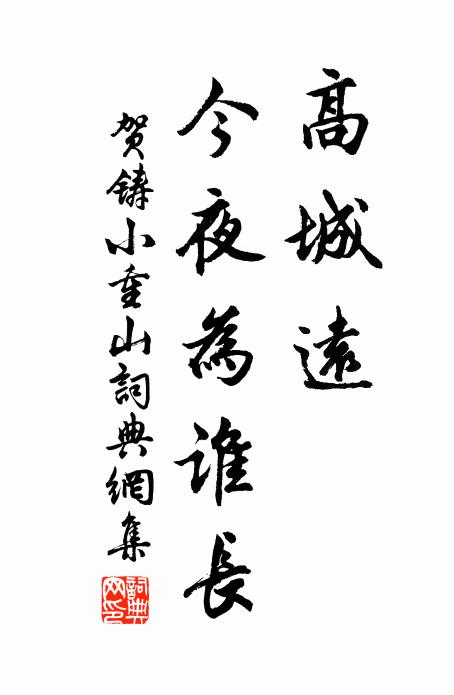 高城遠
今夜為誰長
贺鑄小重山詞典網集
詞典网印